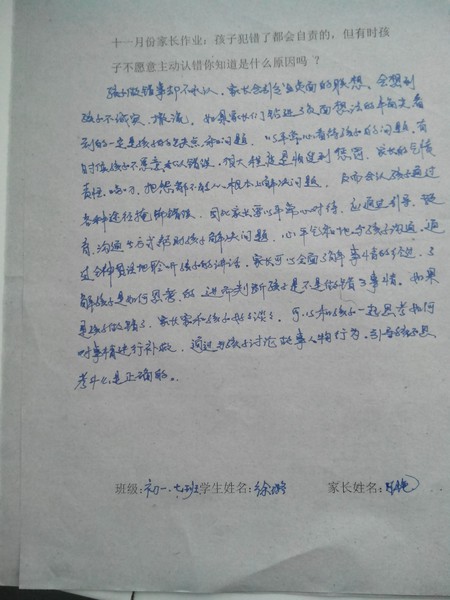 十一月份家长作业：孩子犯错了都会自责的，但有时孩
子不愿意主动认错你知道是什么原因吗 ？
孩子做错事却不承认，家长会引起负面的联想，会想到
孩子不诚实、撒谎，如果家长们带进了负面想法的角度去看
到的一定是孩子的缺点和问题，以平常心看待孩子的问题，有
时候孩子不愿意承认错误，很大程度是怕受到惩罚，家长的气愤
责怪、唠叨、把想解不能从根本上解决问题，反而会让孩子通过
各种途径掩饰错误，因此家长要以平常心对待，应通过引导、教
育、沟通的方式帮助孩子解决问题，心平气和地与孩子沟通，通
过各种方法地聆听孩子的讲话，家长可以全面了解事情的经过，了
解孩子是如何思考的，进而判断孩子是不是做错了事情。如果
是孩子做错了，家长要和孩子好好谈谈，可以和孩子一起思考如何
对事情进行补救，通过与孩子讨论故事人物行为，引导孩子思
考什么是正确的。
班级：初一.七班学生姓名：徐 家长姓名：